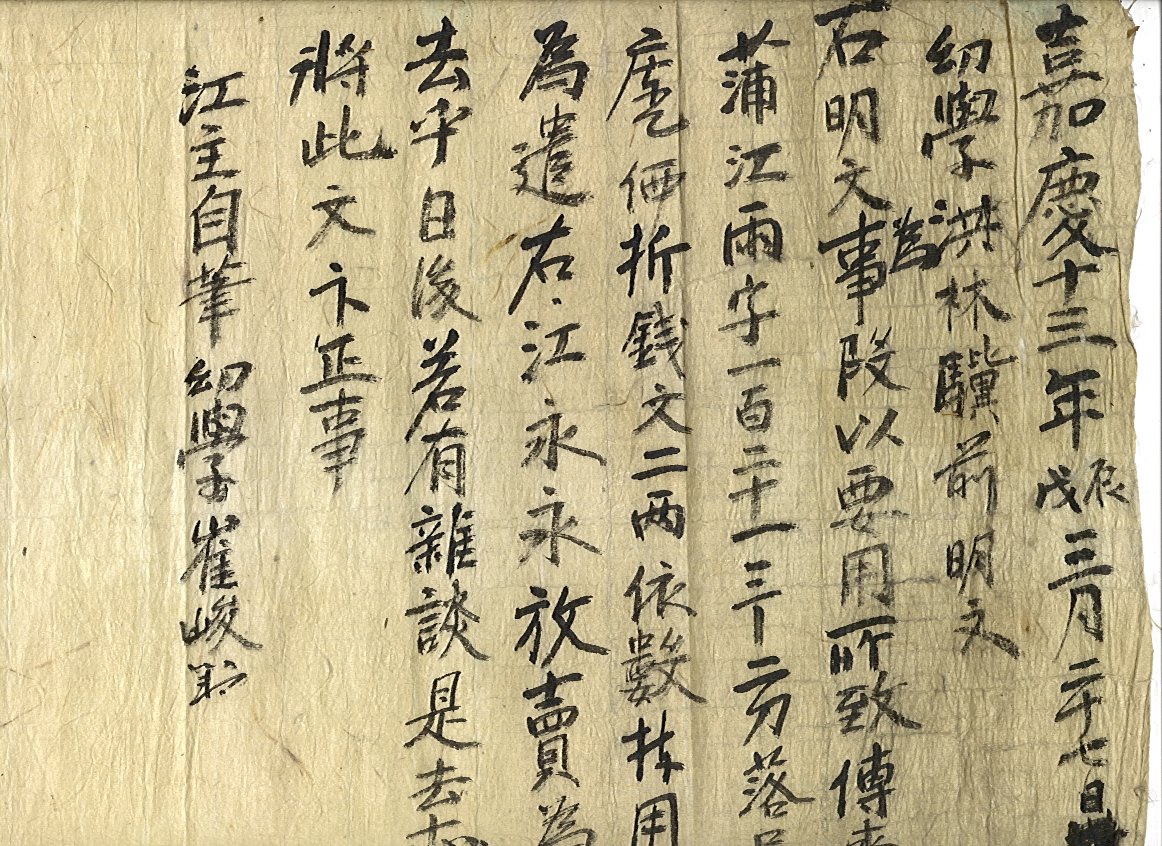 嘉慶十三年戊辰三月二十七日
幼學洪林驥前明文
右明文事爲段以要用所致傳來
蒲江雨字一百二十一三卜二夘落只
庫價折錢文二兩依數捧用
為遣右江永永放賣為
去乎日後若有雜談是去亦
將此文卞正事
江主自筆幼學崔峻